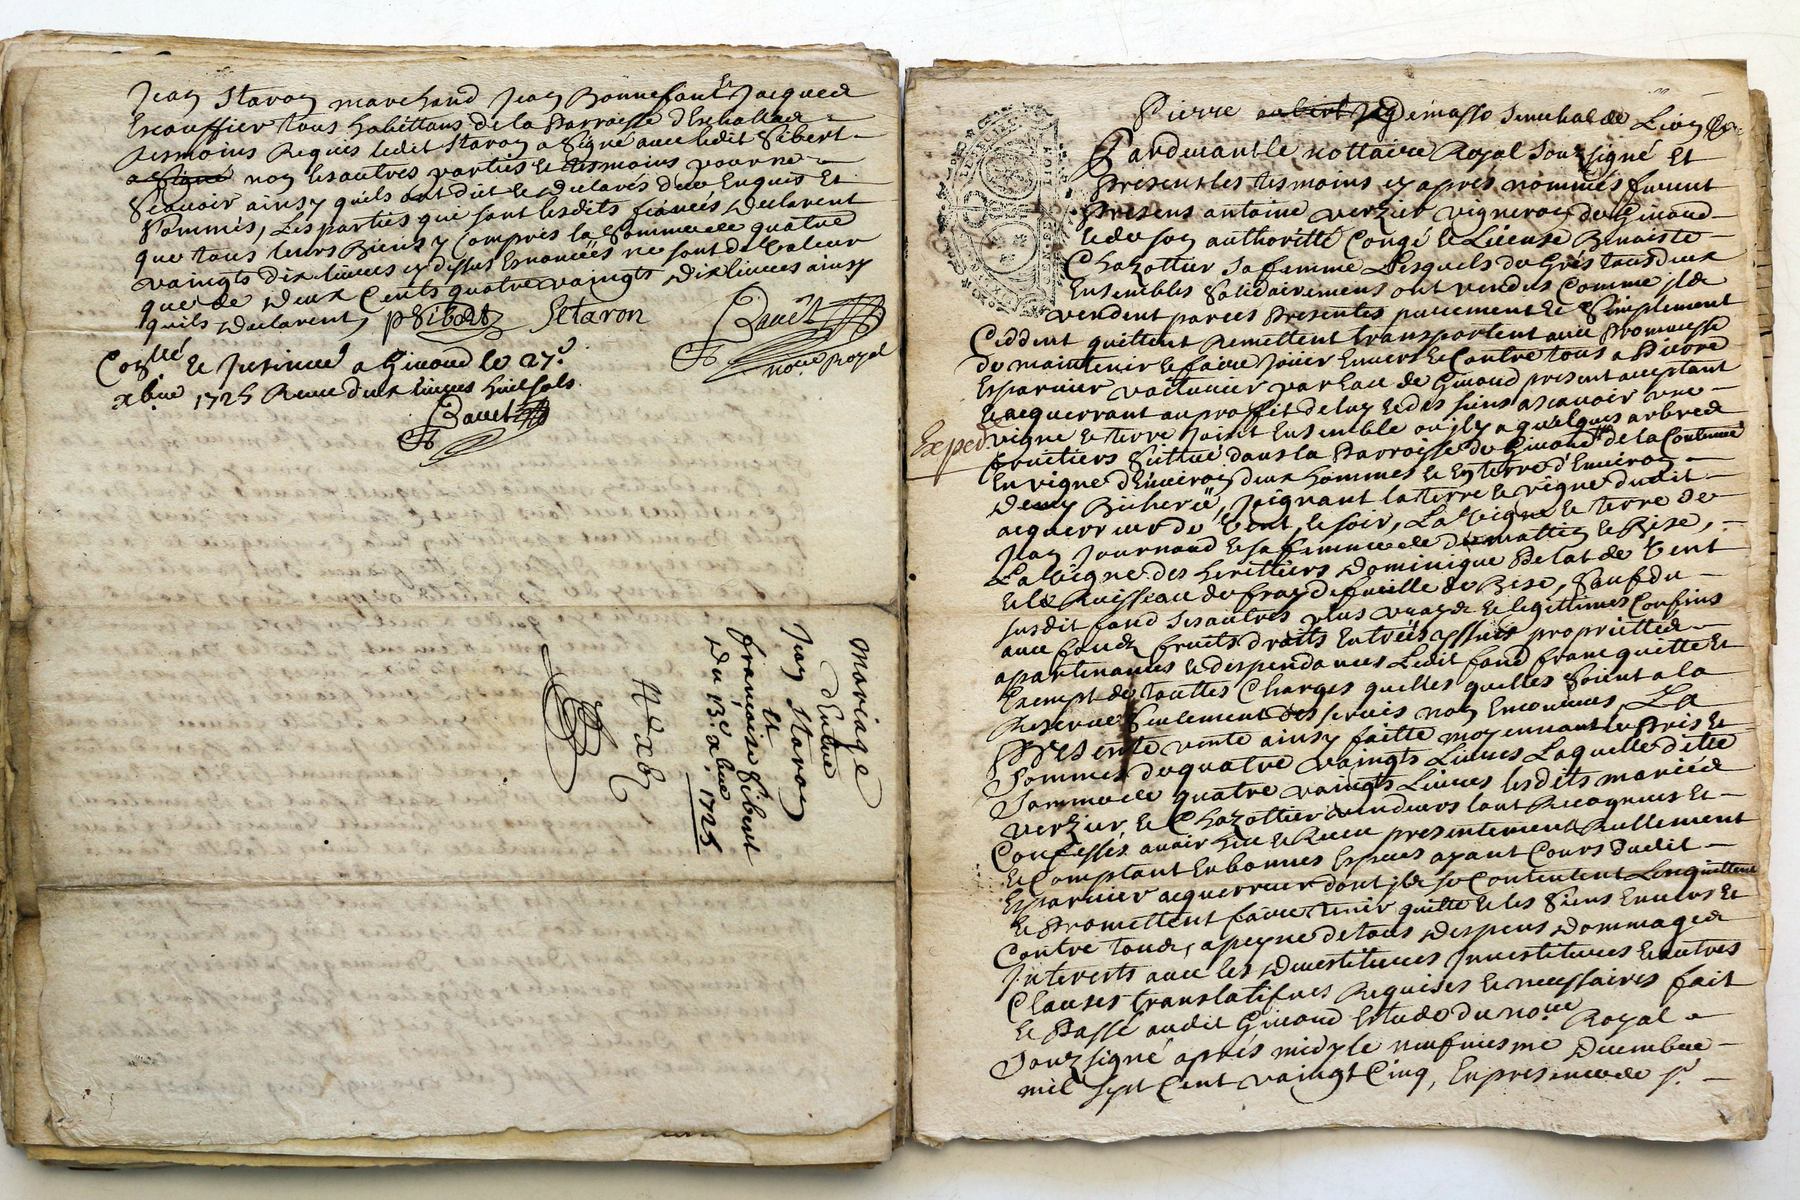 Jean Staron marchand Jean Bonnefont et Jacques
Escouffier tous habittans de la Parroisse d'Eschallas
tesmoins Requis ledit Staron a Signé avec ledit Sibert
a Signé non les autres parties et tesmoins pour ne
Scavoir ainsy quils ont dit et declarés deue Enquis Et
Sommés, Les parties que sont lesdits fiancés declarent
que tous leurs Biens y Compris la Somme de quatre
vaingts dix livres cy dessus Enoncées ne sont de Valeur
que de deux Cents quatre vaingts dix livres ainsy
quils declarent, pSibert Staron
not.re Royal
Con.llé et Insinué a Givord le 27e
xbre 1725 Receu deux livres huit sols
mariage
d'Entre
Jean Staron
et
françoise Sibert
du 13e xbre 1725
Pierre senechal de Lion
Pardevant le nottaire Royal Souzsigné Et
Présent les tesmoins cy après nommés furent
Présens antoine verzier vigneron de Givord
et de son authoritté Congé et License Benoiste
Chazottier sa femme Lesquels de Grés tous deux
Ensembles Solidairement ont vendus Comme ils
vendent par ces Présentes purement et Simplement
Ceddent quittent Remettent transportent avec Promesse
de maintenir et faire jouir Envers et Contre tous a Pierre
Esparcier voiturier par Eau de Givord present acceptant
et acquerrant au proffit de luy et des siens ascavoir une
Exped.
vigne et terre joint Ensemble ou il y a quelques arbres
fruitiers Sittué dans la Parroisse de Givord de la Contenue
En vigne d'Environ deux hommes et En terre d'Environ
demy Bicherée, Joignant la terre et vigne dudit
acquerreur de Vent et soir, La Vigne et terre de
Jean Journoud et sa femme de matin et Bise,
La Vigne des heritiers Dominique Pelat de Vent
et le Ruisseau de de Bise, Sauf du
susdit fond ses autres plus vrays et legittimes Confins
avec fonds fruits droits Entrées yssues proprietés
apartenances et dependances Ledit fond franc quitte Et
Exempt de touttes Charges quelles quelles Soient a la
Reserve Seulement des servis non Encourus, La
Présente vente ainsy faitte moyennant le Pris Et
Somme de quatre vaingts Livres Laquelle ditte
Somme de quatre vaingts Livres lesdits mariés
verzier et Chazottier vendeurs tout Recognues Et
Confessés avoir heu et Receu presentement Reellement
et Comptant En bonnes Especes ayant Cours dudit
Esparcier acquerreur dont ils se Contentent Lenquittent
et Promettent faire tenir quitte et les Siens Envers Et
Contre tous, a peyne de tous despens dommages
Interests avec les devestitures Investitures et autres
Clauses translatifves Requises et necessaires fait
et Passé audit Givord Estude du no.re Royal
Souzsigné après midy le neufviesme decembre
mil sept Cent vaingt Cinq, En presence de Sr